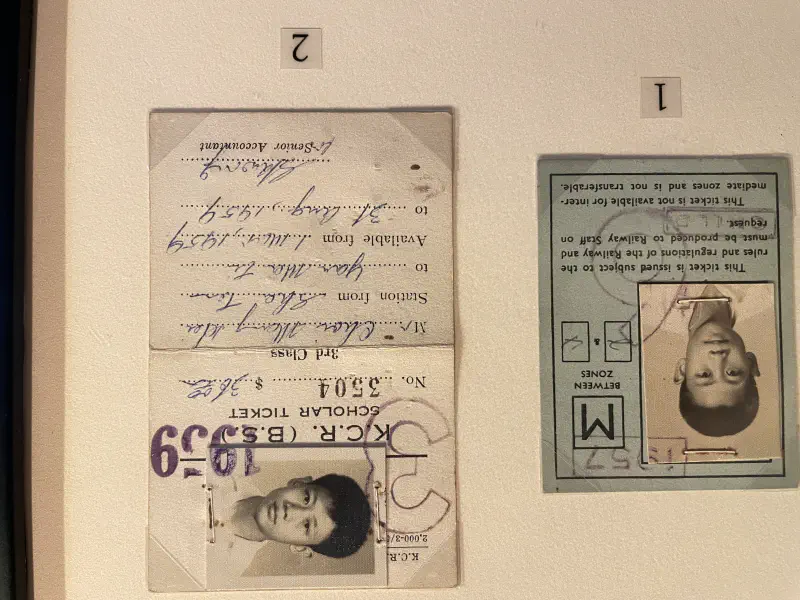 1957
M
BETWEEN
ZONES
&
This ticket is issued subject to the
rules and regulations of the Railway and
must be produced to Railway Staff on
request.
This ticket is not available for inter-
mediate zones and is not transferable.
1
K.C.R.
1959
K.C.R. (B.S.)
SCHOLAR TICKET
No. 3504 $ 36.00
3rd Class
Mr Chan
Station from Sha Tin
to Yau Ma Ti
Available from 1 Mar, 1959
to 31 Aug, 1959
Senior Accountant
2